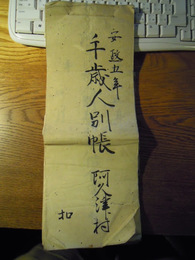 安政五年
千歳人別帳
阿久津村
扣